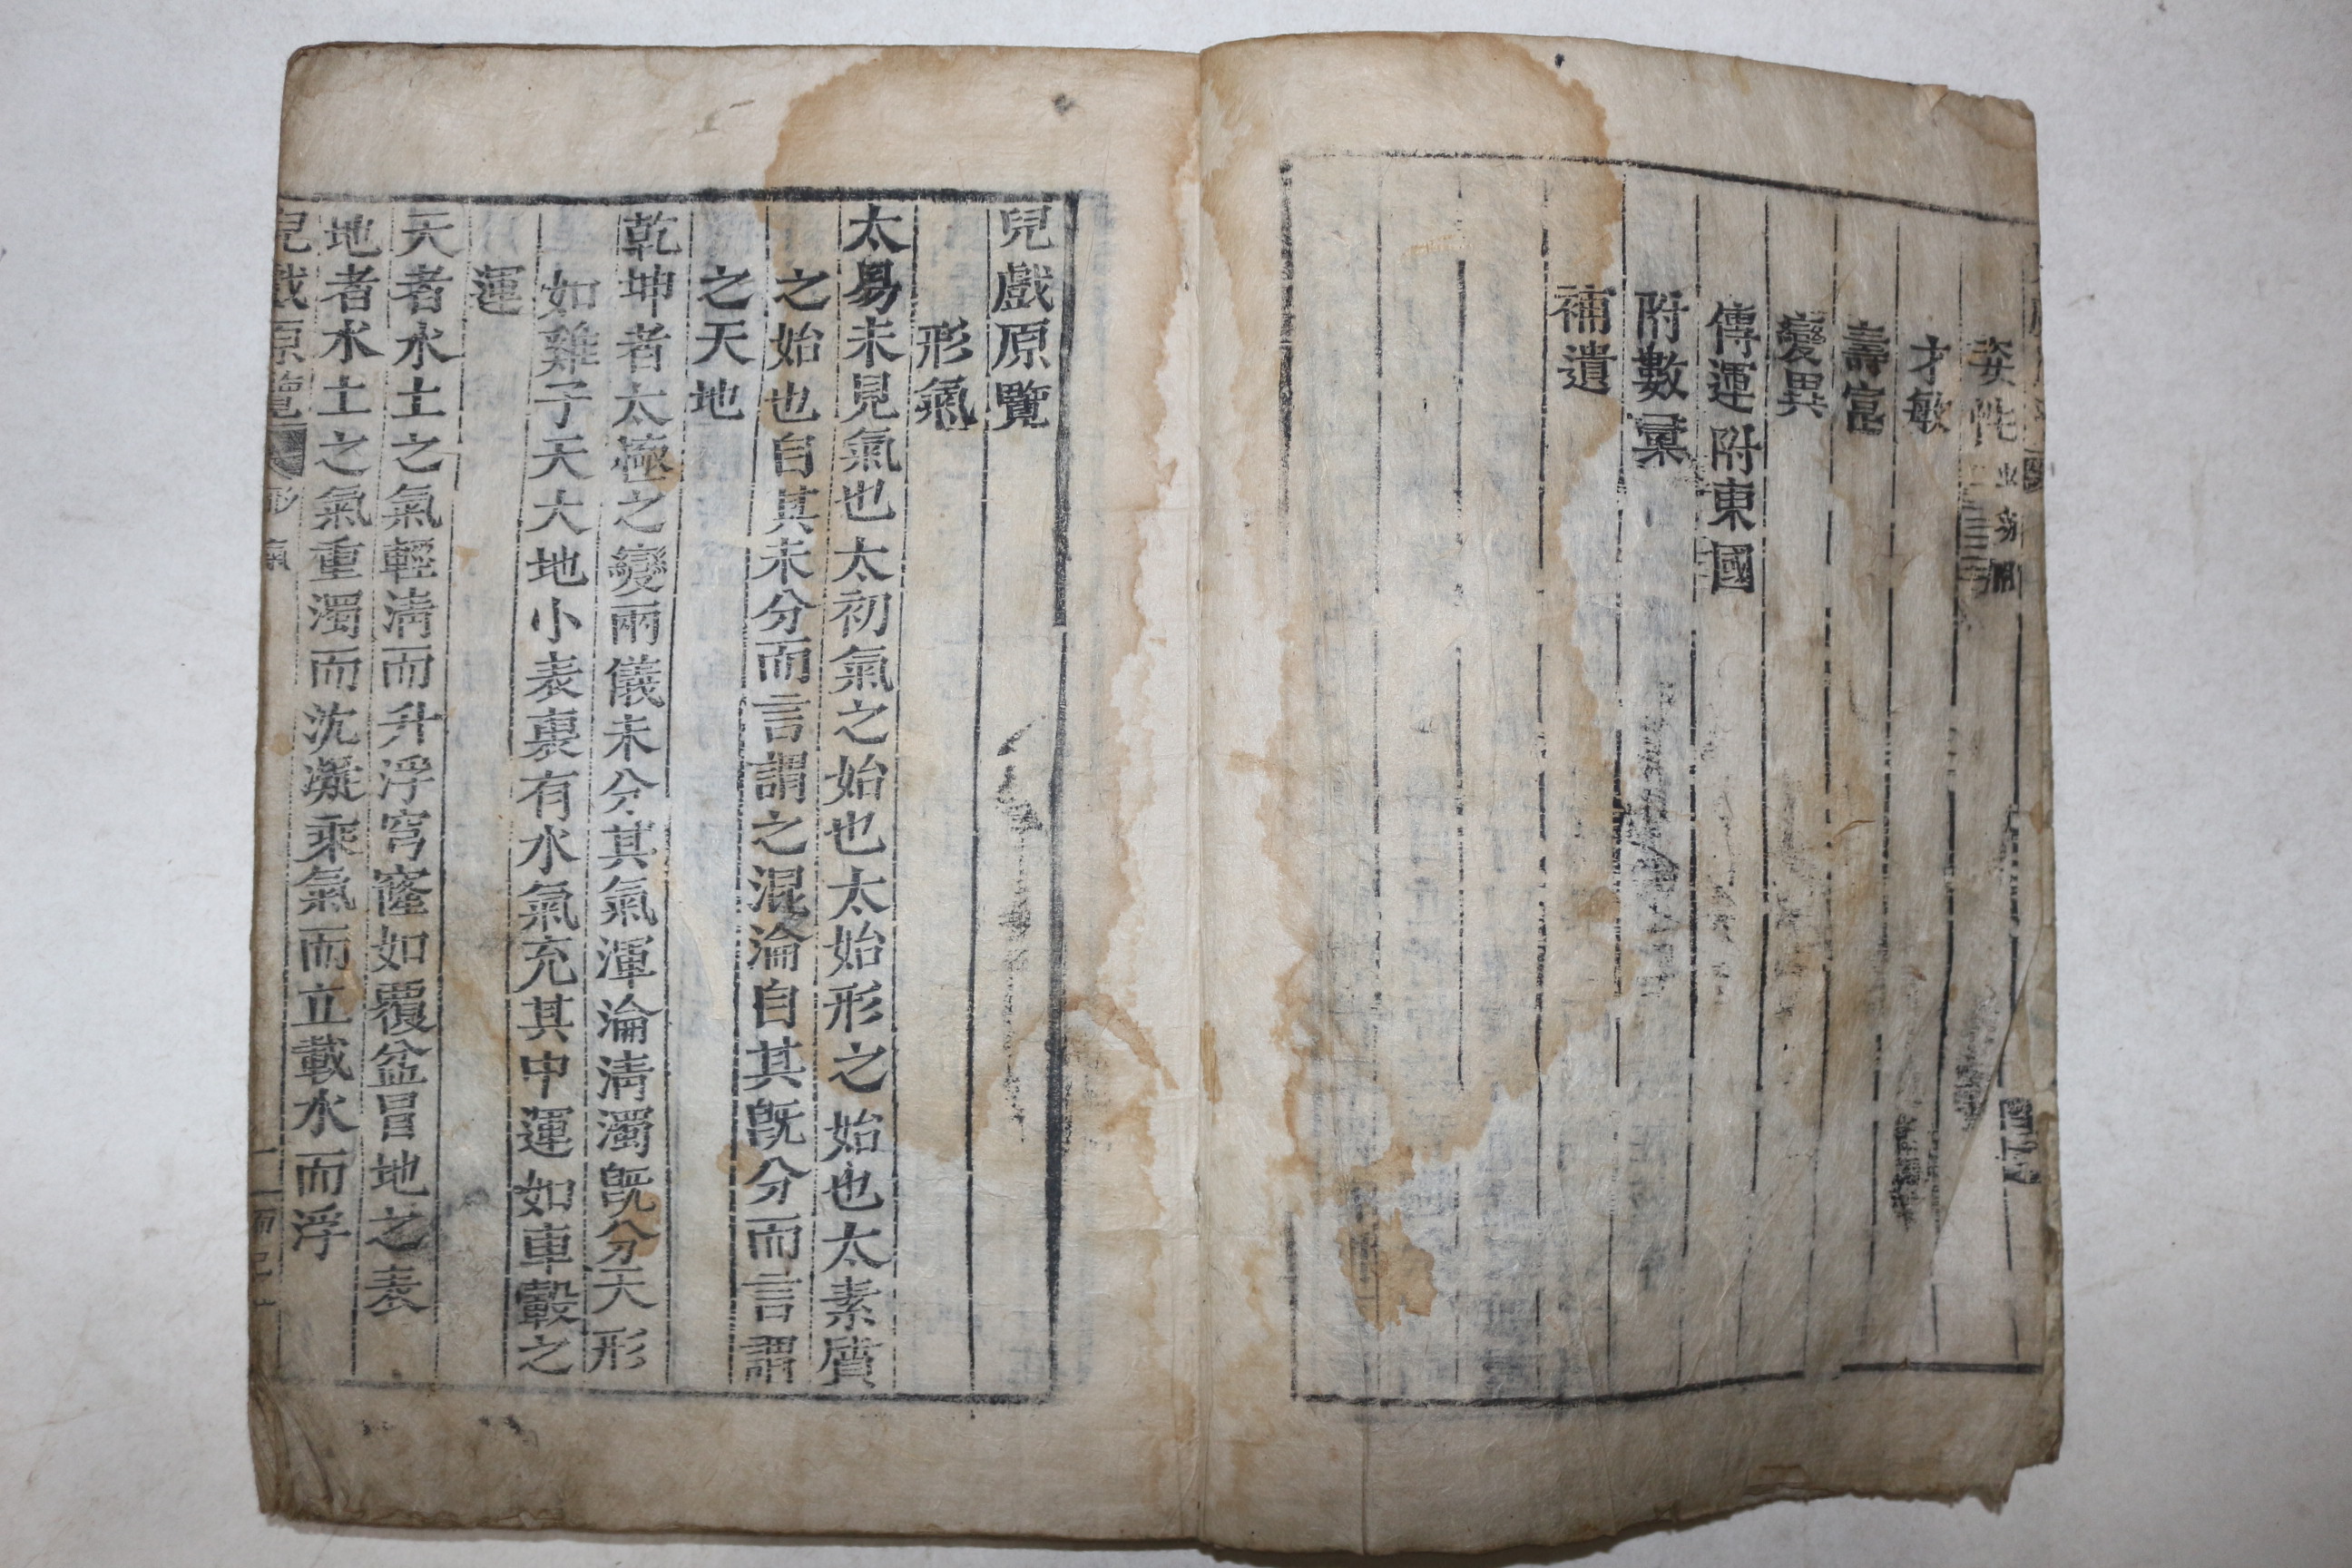 姿性
才敏
壽富
變異
傳運附東國
附數彙
補遺
兒戲原覽
形氣
太易未見氣也太初氣之始也太始形之始也太素質
之始也自其未分而言謂之混淪自其旣分而言謂
之天地
乾坤者太極之變兩儀未分其氣渾淪淸濁旣分天形
如雞子天大地小表裏有水氣充其中運如車轂之
運
天者水土之氣輕淸而升浮穹窿如覆盆冒地之表
地者水土之氣重濁而沈凝乘氣而立載水而浮
兒戲原覽 形氣